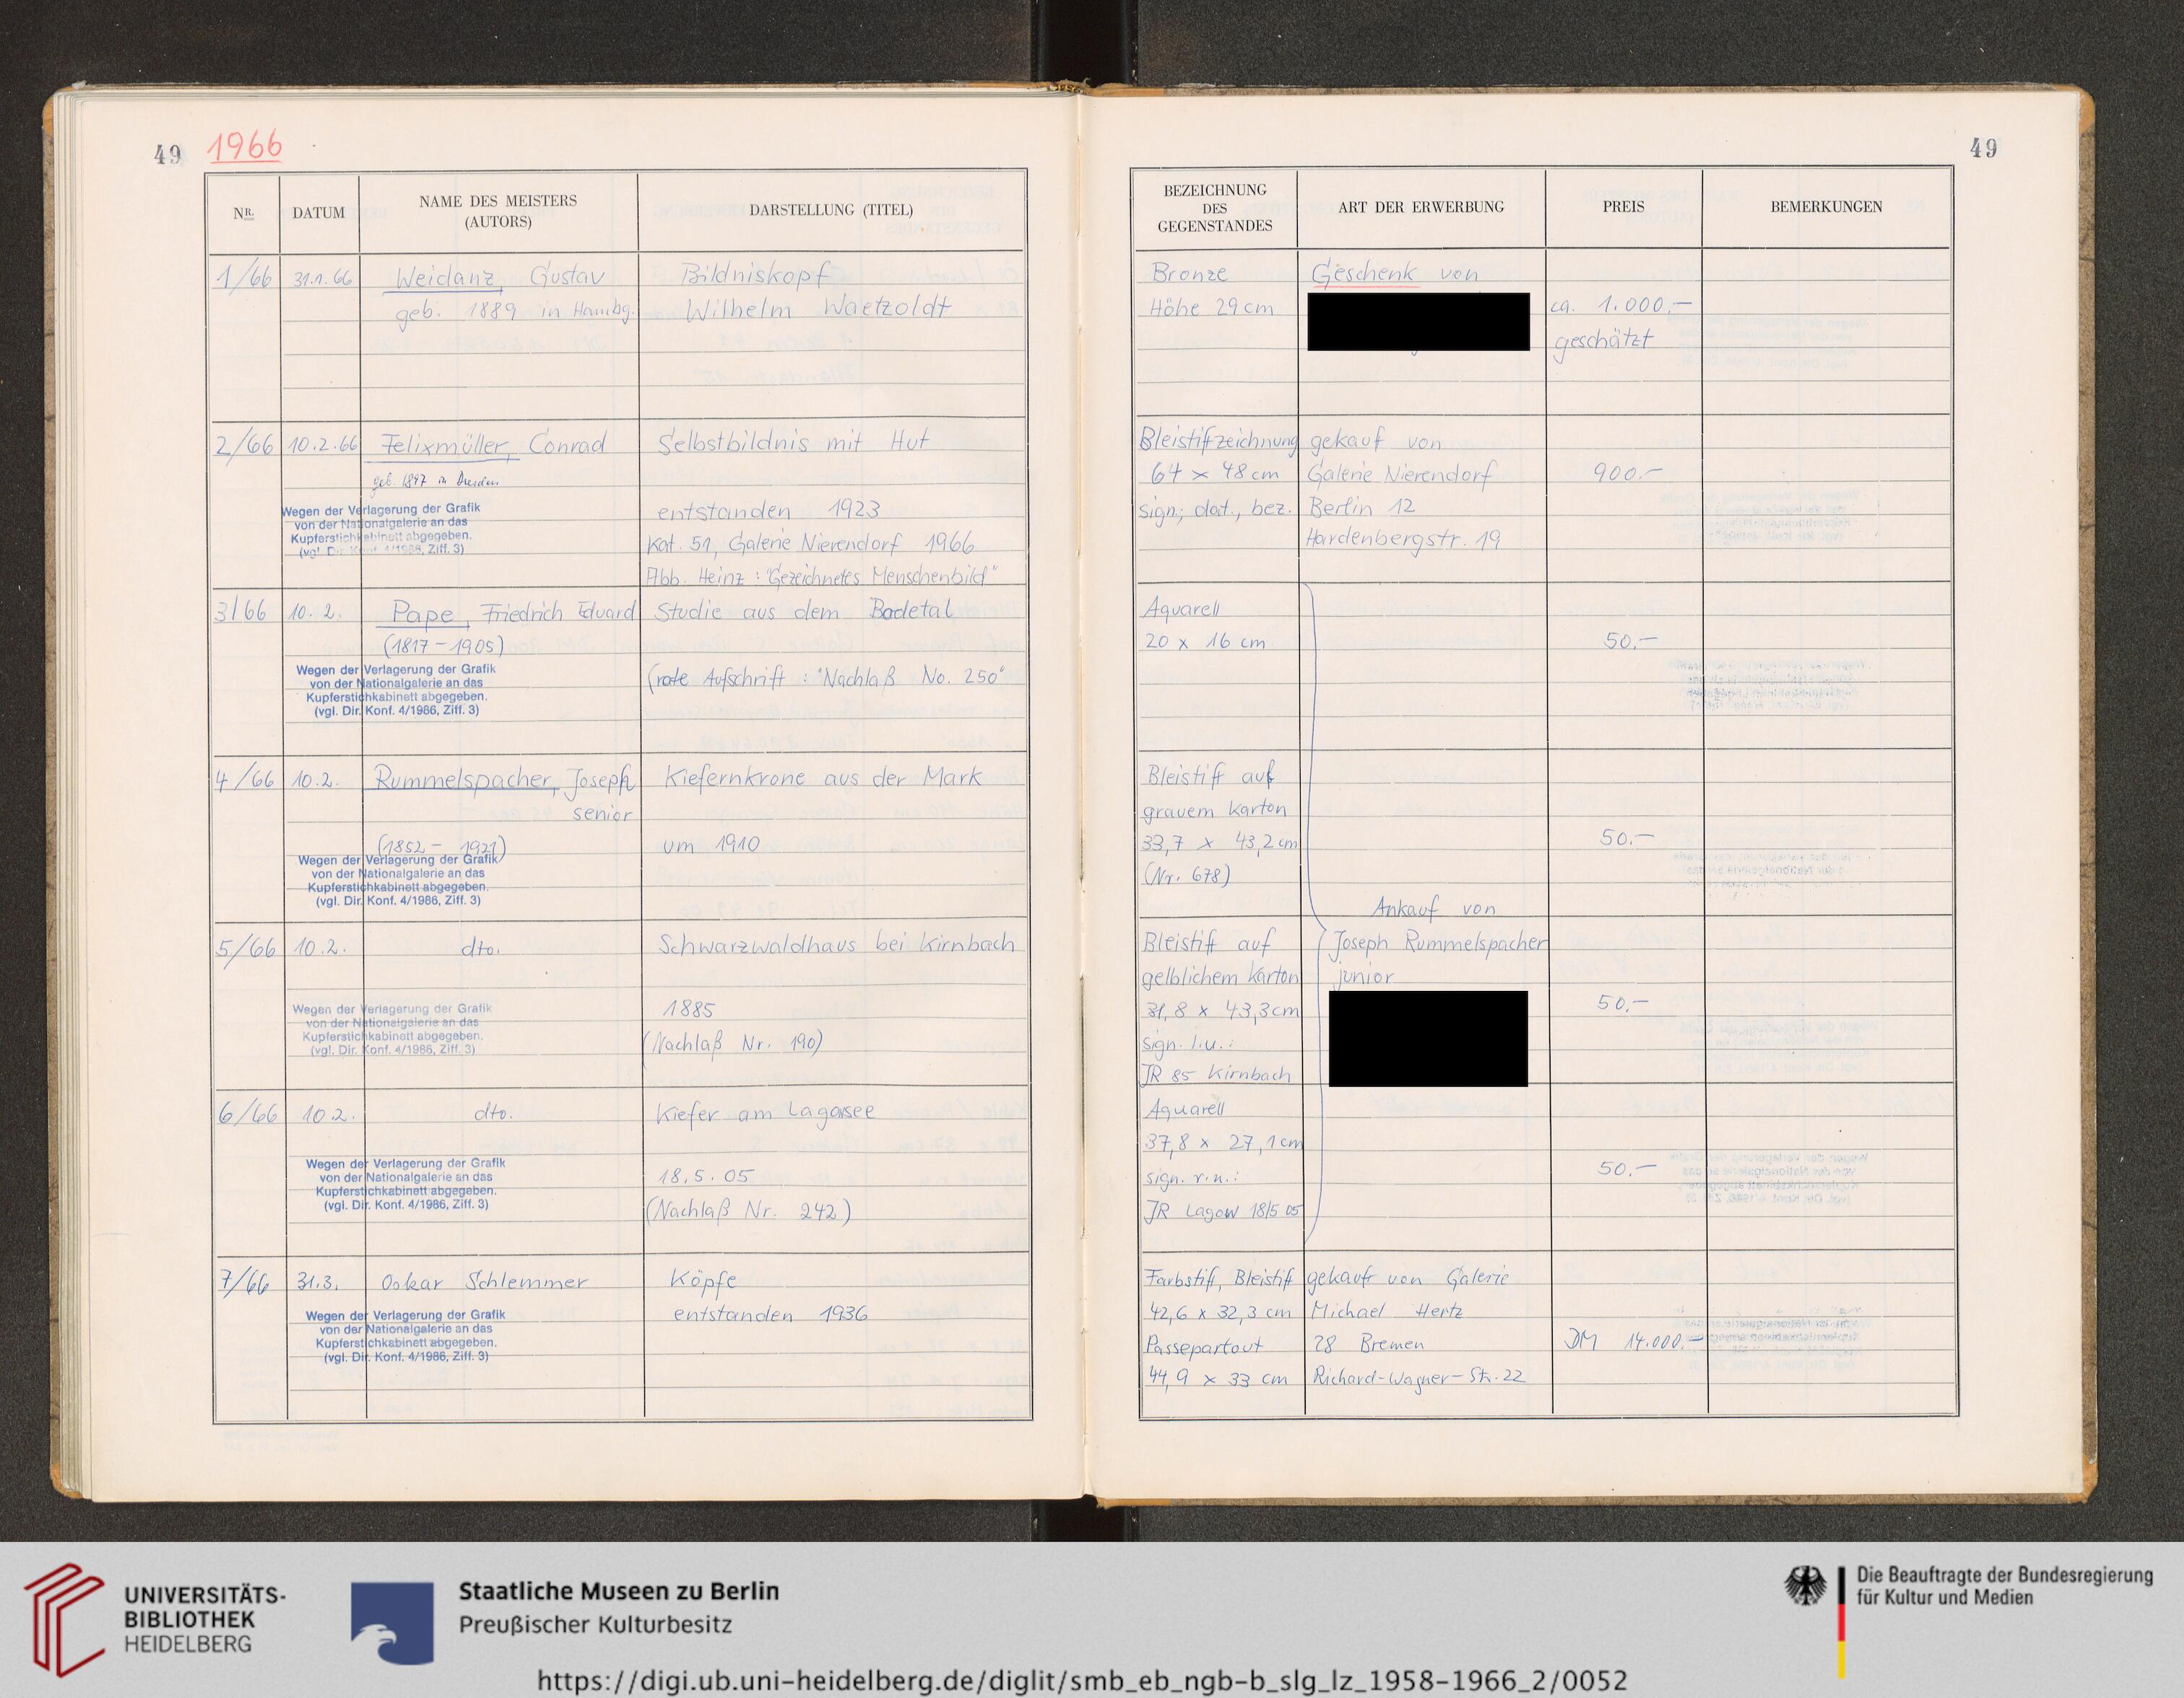 49 1966
NR.
DATUM
NAME DES MEISTERS
(AUTORS)
DARSTELLUNG (TITEL)
1/66 31.1.66 Weidanz, Gustav Bildniskopf
geb. 1889 in Hambg. Wilhelm Waetzoldt
2/66 10.2.66 Felixmüller, Conrad Selbstbildnis mit Hut
geb. 1897 in Dresden
Wegen der Verlagerung der Grafik
von der Nationalgalerie an das
Kupferstichkabinett abgegeben.
(vgl. Dir. Konf. 4/1986, Ziff. 3)
entstanden 1923
Kat. 51, Galerie Nierendorf 1966
Abb. Heinz : "Gezeichnetes Menschenbild"
3/66 10.2. Pape, Friedrich Eduard Studie aus dem Bodetal
(1817-1905)
Wegen der Verlagerung der Grafik
von der Nationalgalerie an das
Kupferstichkabinett abgegeben.
(vgl. Dir. Konf. 4/1986, Ziff. 3)
(rote Aufschrift : "Nachlaß No. 250"
4/66 10.2. Rummelspacher, Joseph Kiefernkrone aus der Mark
senior
(1852 - 1921) um 1910
Wegen der Verlagerung der Grafik
von der Nationalgalerie an das
Kupferstichkabinett abgegeben.
(vgl. Dir. Konf. 4/1986, Ziff. 3)
5/66 10.2. dto. Schwarzwaldhaus bei Kirnbach
Wegen der Verlagerung der Grafik
von der Nationalgalerie an das
Kupferstichkabinett abgegeben.
(vgl. Dir. Konf. 4/1986, Ziff. 3)
1885
(Nachlaß Nr. 190)
6/66 10.2. dto. Kiefer am Lagowsee
Wegen der Verlagerung der Grafik
von der Nationalgalerie an das
Kupferstichkabinett abgegeben.
(vgl. Dir. Konf. 4/1986, Ziff. 3)
18.5.05
(Nachlaß Nr. 242)
7/66 31.3. Oskar Schlemmer Köpfe
entstanden 1936
Wegen der Verlagerung der Grafik
von der Nationalgalerie an das
Kupferstichkabinett abgegeben.
(vgl. Dir. Konf. 4/1986, Ziff. 3)
49
BEZEICHNUNG
DES
GEGENSTANDES
ART DER ERWERBUNG
PREIS
BEMERKUNGEN
Bronze Geschenk von
Höhe 29 cm ca. 1.000,-
geschätzt
Bleistiftzeichnung gekauf von
64 x 48 cm Galerie Nierendorf 900.-
sign., dat., bez. Berlin 12
Hardenbergstr. 19
Aquarell
20 x 16 cm 50.-
Bleistift auf
grauem Karton
33,7 x 43,2 cm 50.-
(Nr. 678)
Ankauf von
Bleistift auf Joseph Rummelspacher
gelblichem Karton junior
31,8 x 43,3 cm 50,-
sign. l.u.:
JR 85 Kirnbach
Aquarell
37,8 x 27,1 cm
sign. r.u.: 50.-
JR Lagow 18/5 05
Farbstift, Bleistift gekauft von Galerie
42,6 x 32,3 cm Michael Hertz
Passepartout 28 Bremen DM 14.000.-
44,9 x 33 cm Richard-Wagner-Str. 22
UNIVERSITÄTS-
BIBLIOTHEK
HEIDELBERG
Staatliche Museen zu Berlin
Preußischer Kulturbesitz
Die Beauftragte der Bundesregierung
für Kultur und Medien
https://digi.ub.uni-heidelberg.de/diglit/smb_eb_ngb-b_slg_lz_1958-1966_2/0052